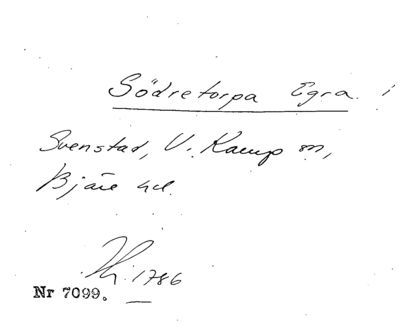 Södretorpa Egra. i
Svenstad, V. Karup sn,
Bjäre hd.
Lk. 1786
Nr 7099.